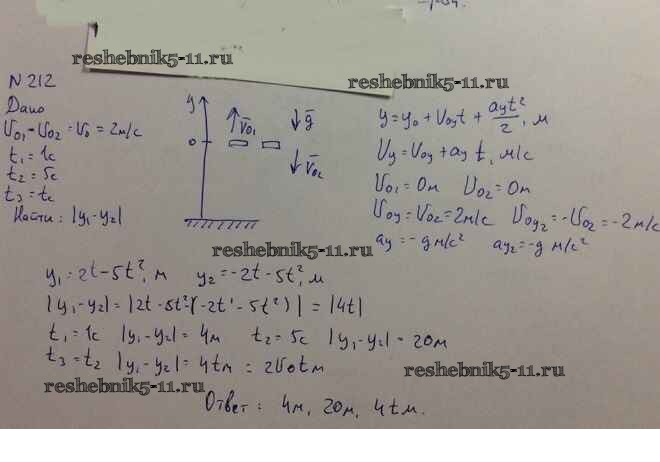 reshebnik5-11.ru
reshebnik5-11.ru
N 212
Дано
V₀₁ = V₀₂ = V₀ = 2м/с
t₁ = 1с
t₂ = 5с
t₃ = tс
Найти: |y₁-y₂|
y
0
V̄₀₁
ḡ
V̄₀₂
y = y₀ + V₀yt + ayt²/2, м
Vy = V₀y + ay t, м/с
V₀₁ = 0м V₀₂ = 0м
V₀y = V₀₂ = 2м/с V₀y₂ = -V₀₂ = -2м/с
ay = -g м/с² ay₂ = -g м/с²
reshebnik5-11.ru
y₁ = 2t - 5t², м y₂ = -2t - 5t², м
|y₁-y₂| = |2t - 5t² - (-2t - 5t²)| = |4t|
t₁ = 1с |y₁-y₂| = 4м t₂ = 5с |y₁-y₂| = 20м
t₃ = t₂ |y₁-y₂| = 4tм = 2V₀tм
reshebnik5-11.ru
reshebnik5-11.ru
Ответ: 4м, 20м, 4tм.